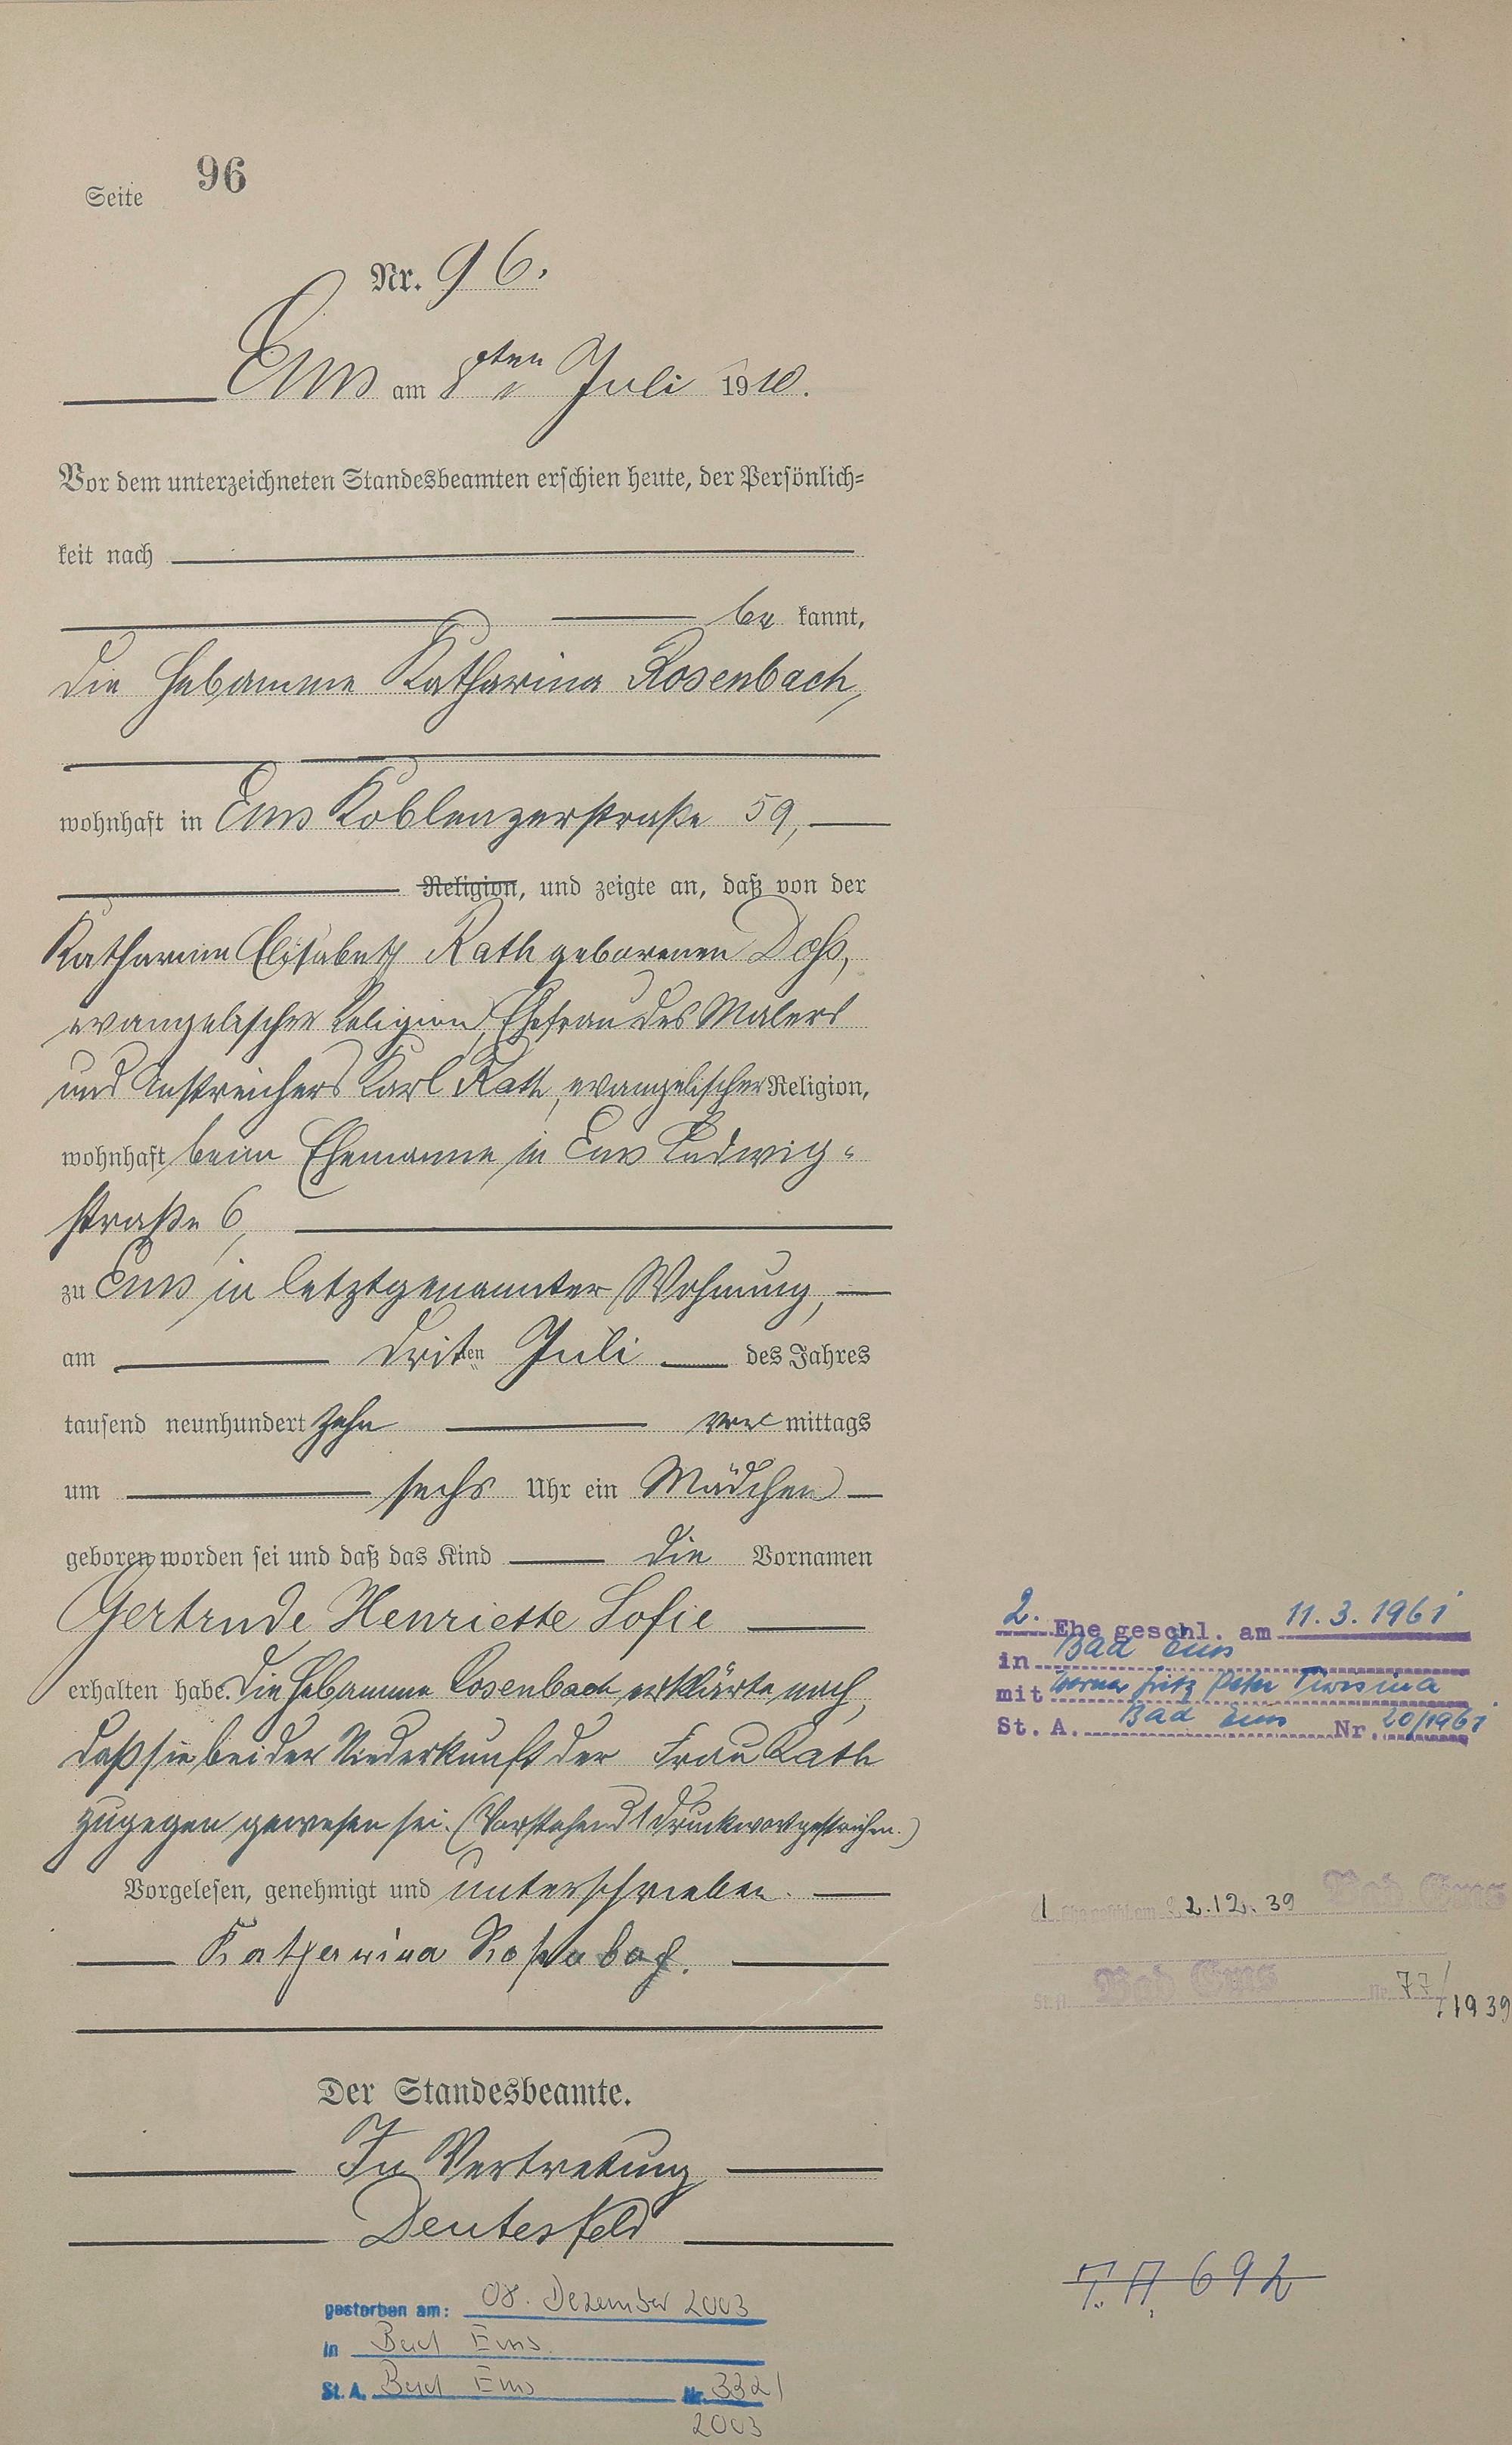 Seite 96
Nr. 96.
Ems am 8ten Juli 1910.
Vor dem unterzeichneten Standesbeamten erschien heute, der Persönlich=
keit nach
be kannt,
die Hebamme Katharina Rosenbach,
wohnhaft in Ems Koblenzerstraße 59,
Religion, und zeigte an, daß von der
Katharina Elisabeth Rath geborenen
evangelischer Religion, Ehefrau des Malers
und Anstreichers Karl Rath, evangelischer Religion,
wohnhaft beim Ehemanne in Ems Ludwig=
straße 6,
zu Ems in letztgenannter Wohnung,
am dritten Juli des Jahres
tausend neunhundert zehn vor mittags
um sechs Uhr ein Mädchen
geboren worden sei und daß das Kind die Vornamen
Gertrude Henriette Sofie
erhalten habe. Die Hebamme Rosenbach erklärte noch,
daß sie bei der Niederkunft der Frau Rath
zugegen gewesen sei. (Vorstehend 1 Druckwort gestrichen.)
Vorgelesen, genehmigt und unterschrieben.
Katharina Rosenbach.
Der Standesbeamte.
In Vertretung
Deutesfeld
gestorben am: 08. Dezember 2003
in Bad Ems
St. A. Bad Ems Nr. 332/
2003
2. Ehe geschl. am 11.3.1961
in Bad Ems
mit Werner Fritz Peter
St. A. Bad Ems Nr. 20/1961
1 Ehe geschl. am 22.12.39 Bad Ems
St. A. Bad Ems Nr. 77/
1939
T. A. 692